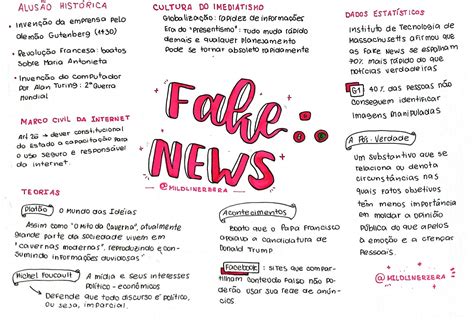 ALUSÃO HISTÓRICA
• Invenção da imprensa pelo
Alemão Gutenberg (1430)
• Revolução Francesa: boatos
Sobre Maria Antonieta
• Invenção do computador
Por Alan Turing: 2ª Guerra
Mundial
MARCO CIVIL DA INTERNET
Art. 26 → dever constitucional
do Estado a capacitação para
o uso seguro e responsável
da internet.
CULTURA DO IMEDIATISMO
Globalização: rapidez de informações
Era do "Presentismo": Tudo muda rápido
demais e qualquer planejamento
Pode se tornar obsoleto rapidamente
Fake
NEWS
@MILDLINERZERA
DADOS ESTATÍSTICOS
Instituto de Tecnologia de
Massachusetts afirmou que
as Fake News se espalham
70% mais rápido do que
notícias verdadeiras
G1 40% das pessoas não
Conseguem identificar
Imagens manipuladas
A Pós-Verdade
Um substantivo que se
relaciona ou denota
circunstâncias nas
quais fatos objetivos
têm menos importância
em moldar a opinião
Pública do que apelos
à emoção e a crenças
Pessoais.
@MILDLINERZERA
TEORIAS
Platão O mundo das Ideias
Assim como "O mito da Caverna", atualmente
grande parte da sociedade vivem em
"cavernas modernas", reproduzindo e con-
sumindo informações duvidosas"
Michel Foucault A mídia e seus interesses
Político-econômicos
Defende que todo discurso é político,
ou seja, imparcial.
Acontecimentos
Boato que o Papa Francisco
apoiava a candidatura de
Donald Trump
Facebook: sites que compar-
tilham conteúdo falso não Po-
derão usar sua rede de anún-
cios.